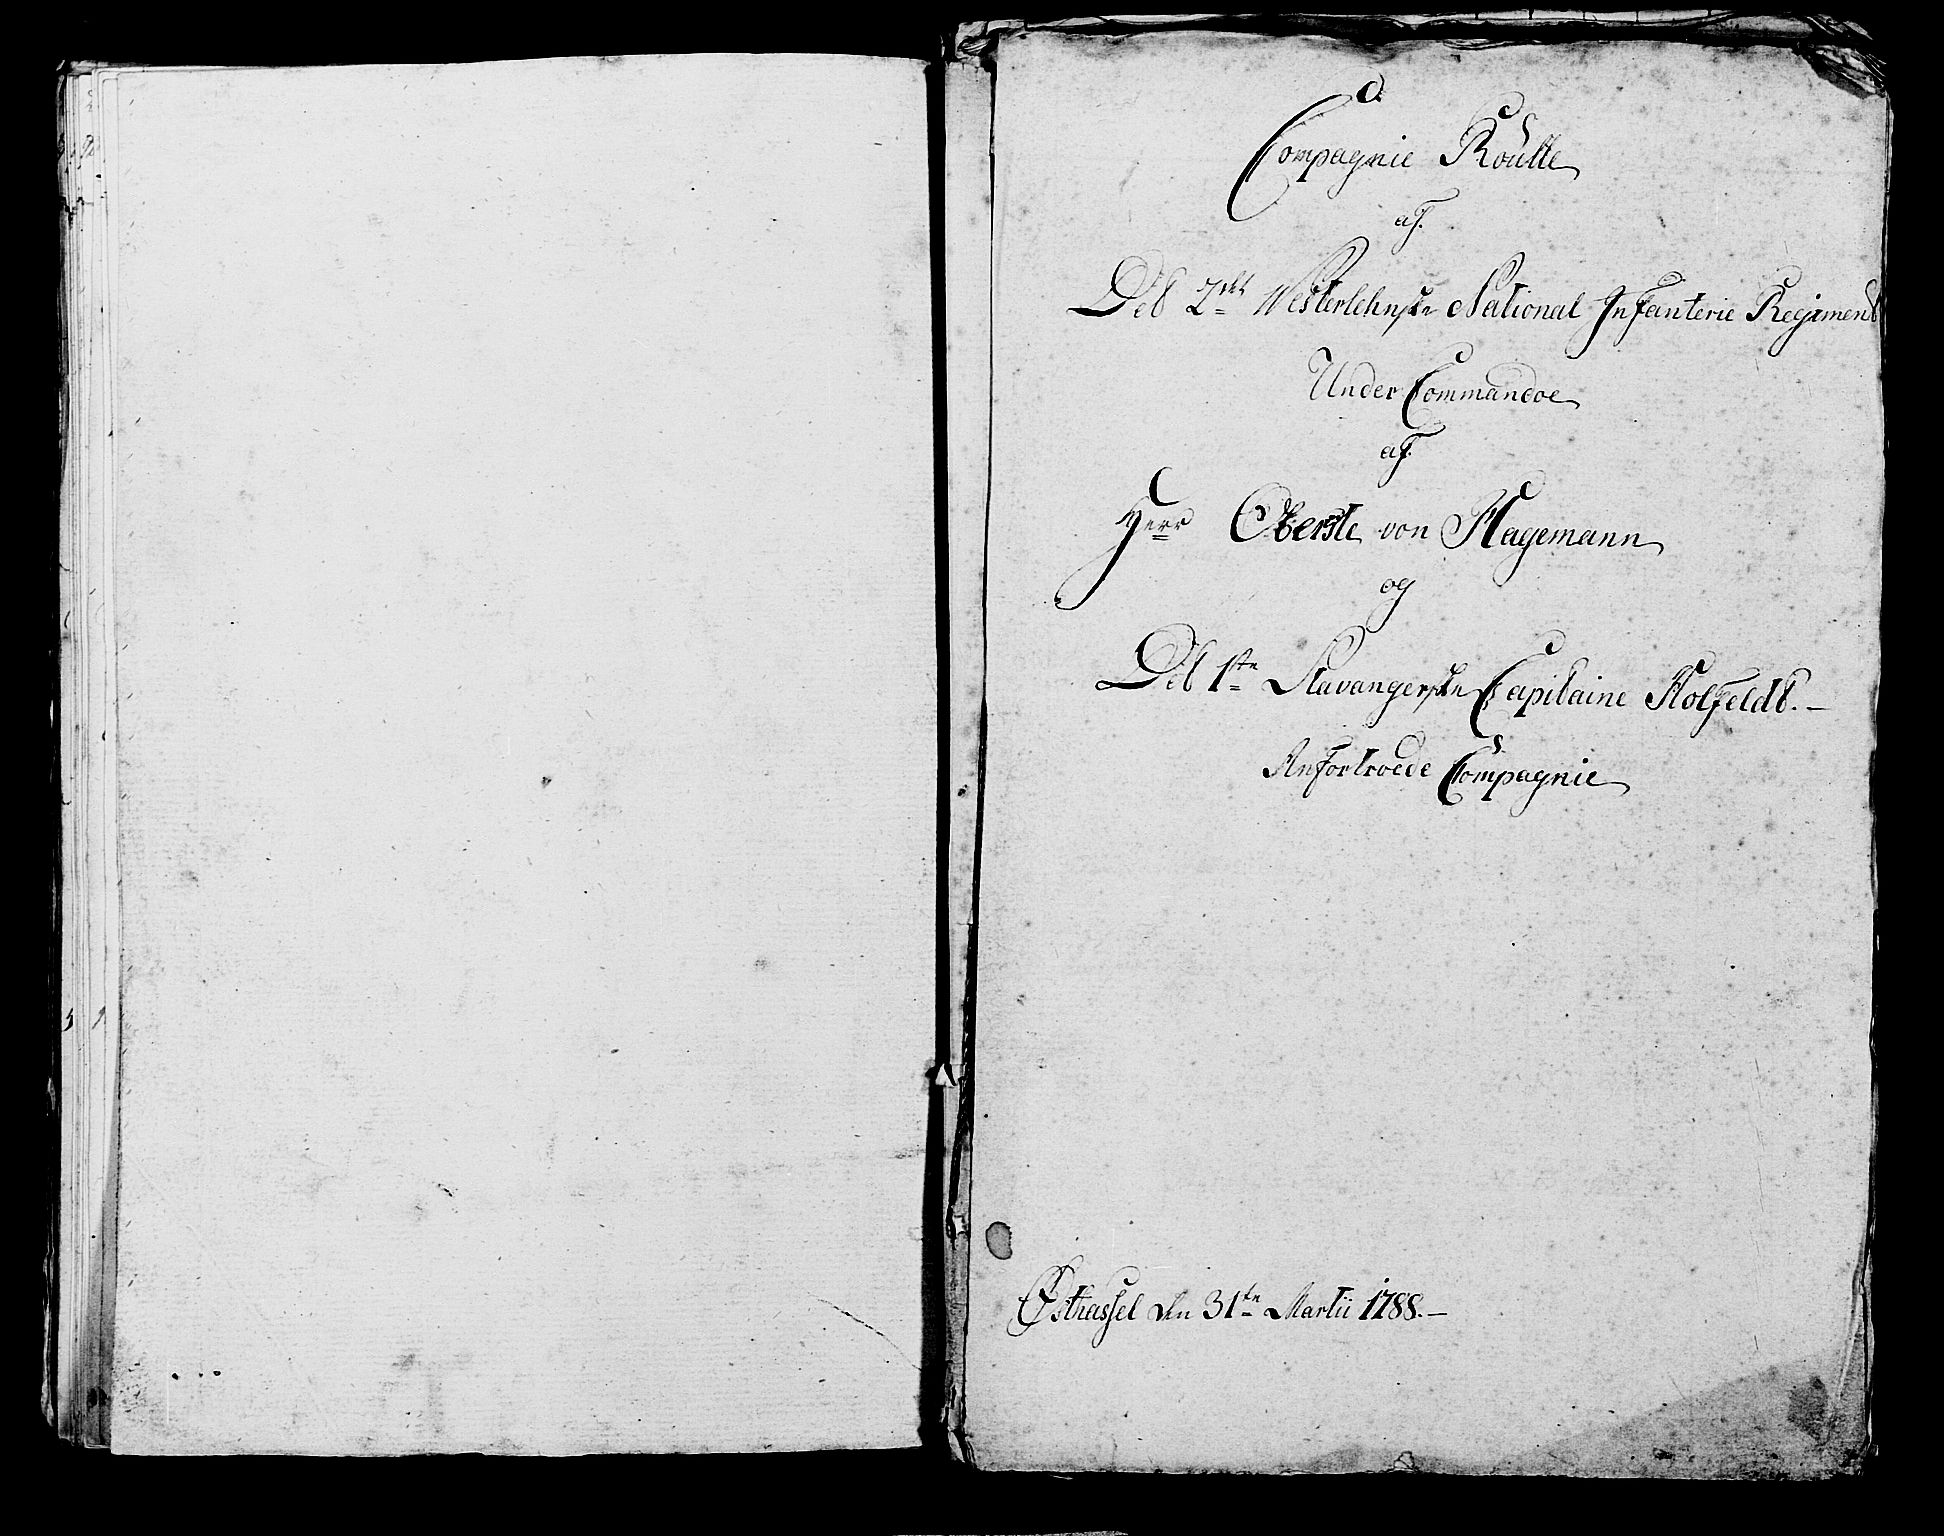 Compagnie Roulle
af
Det 2det Westerlehnske National Infanterie Regiment
Under Commandoe
af
Herr Oberste von Hagemann
og
Det 1ste Stavangerske Capitaine Holfeldt.
Anfortroede Compagnie
Østhassel den 31te Martii 1788.